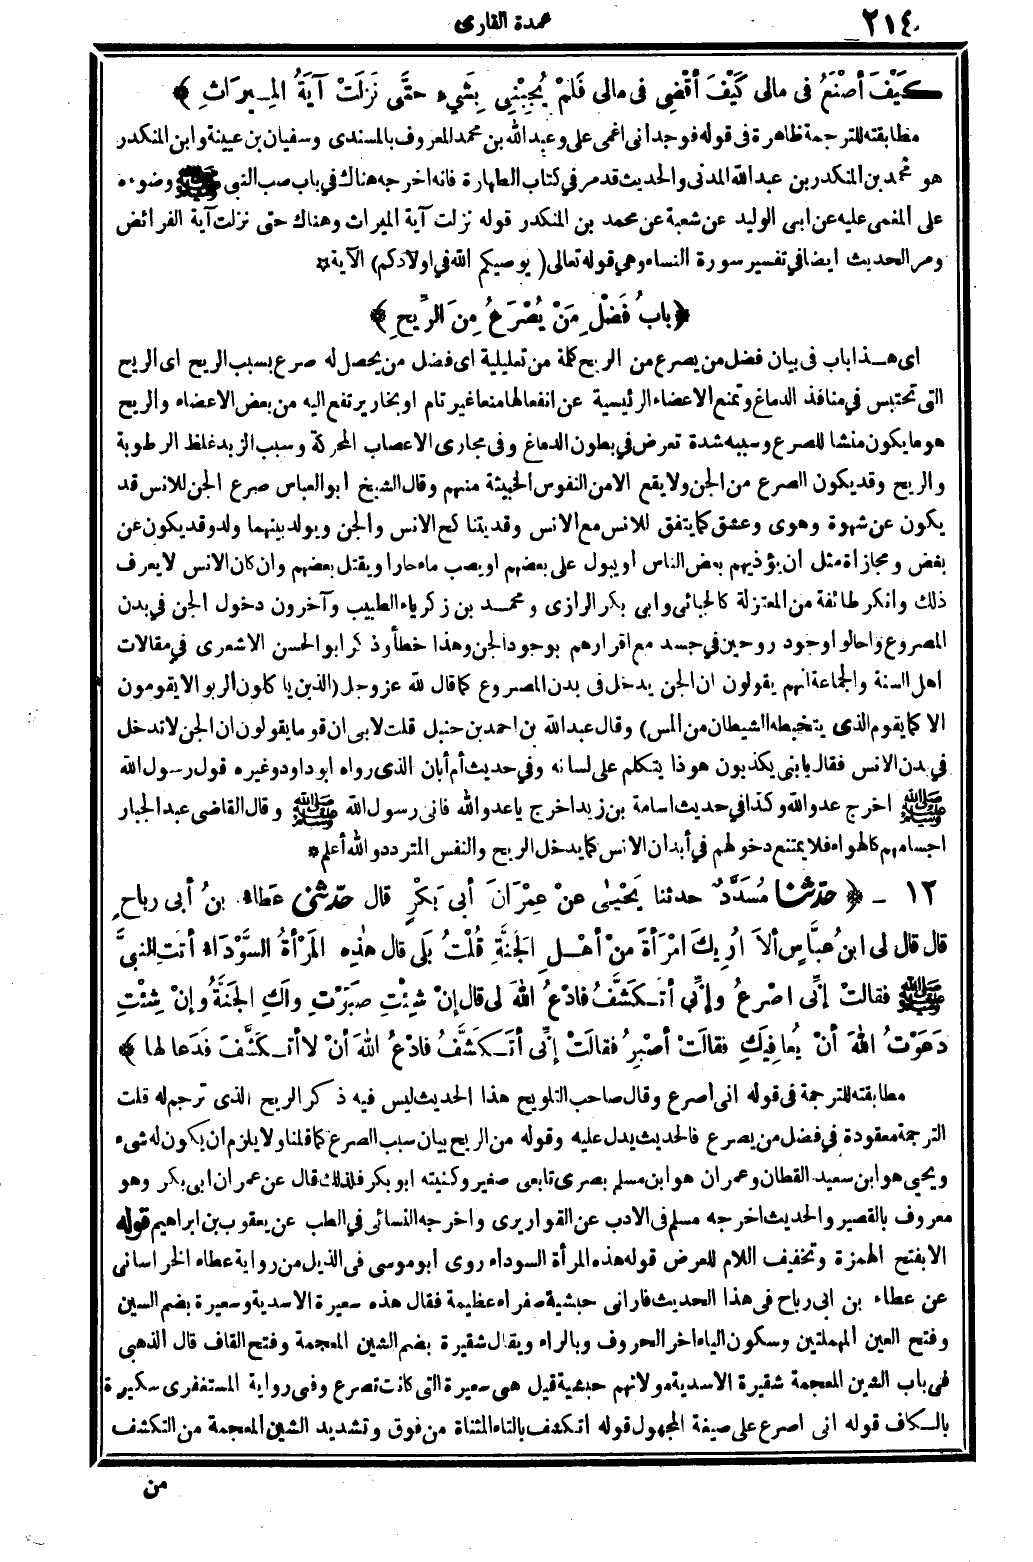 ٢١٤
عمدة القارى
كَيْفَ أصْنَعُ فى مالى كَيْفَ أقْضِى فى مالى فَلَمْ يُجِبْنِى بِشَىْءٍ حتَّى نَزَلَتْ آيَةُ المِيراثِ ﴾
مطابقته للترجمة ظاهرة فى قوله فوجدانى اغمى على وعبد الله بن محمد المعروف بالمسندى وسفيان بن عيينة وابن المنكدر
هو محمد بن المنكدر بن عبد الله المدنى والحديث قد مر فى كتاب الطهارة فانه اخرجه هناك فى باب صب النبى ﷺ وضوءه
على المغمى عليه عن ابى الوليد عن شعبة عن محمد بن المنكدر قوله نزلت آية الميراث وهناك حتى نزلت آية الفرائض
ومر الحديث ايضا فى تفسير سورة النساء وهى قوله تعالى ( يوصيكم الله فى اولادكم) الآية *
﴿ بابُ فَضْلِ مَنْ يُصْرَعُ مِنَ الرِّيحِ ﴾
اى هذا باب فى بيان فضل من يصرع من الريح كلمة من تعليلية اى فضل من يحصل له صرع بسبب الريح اى الريح
التى تحتبس فى منافذ الدماغ وتمنع الاعضاء الرئيسية عن انفعالها منعا غير تام او بخار يرتفع اليه من بعض الاعضاء والريح
هو ما يكون منشا للصرع وسببه شدة تعرض فى بطون الدماغ وفى مجارى الاعصاب المحركة وسبب الزبد غلظ الرطوبة
والريح وقد يكون الصرع من الجن ولا يقع الا من النفوس الخبيثة منهم وقال الشيخ ابو العباس صرع الجن للانس قد
يكون عن شهوة وهوى وعشق كما يتفق للانس مع الانس وقد يتنا كح الانس والجن ويولد بينهما ولد وقد يكون عن
بغض ومجازاة مثل ان يؤذيهم بعض الناس او يبول على بعضهم او يصب ماء حارا ويقتل بعضهم وان كان الانس لا يعرف
ذلك وانكر طائفة من المعتزلة كالجبائى وابى بكر الرازى ومحمد بن زكرياء الطبيب وآخرون دخول الجن فى بدن
المصروع واحالوا وجود روحين فى جسد مع اقرارهم بوجود الجن وهذا خطأ وذكر ابو الحسن الاشعرى فى مقالات
اهل السنة والجماعة انهم يقولون ان الجن يدخل فى بدن المصروع كما قال لله عز وجل (الذين ياكلون الربو الا يقومون
الا كما يقوم الذى يتخبطه الشيطان من المس) وقال عبد الله بن احمد بن حنبل قلت لابى ان قوما يقولون ان الجن لا تدخل
فى بدن الانس فقال يا بنى يكذبون هوذا يتكلم على لسانه وفى حديث أم أبان الذى رواه ابو داود وغيره قول رسول الله
ﷺ اخرج عدو الله وكذا فى حديث اسامة بن زيد اخرج يا عدو الله فانى رسول الله ﷺ وقال القاضى عبد الجبار
اجسامهم كالهواء فلا يمتنع دخولهم فى أبدان الانس كما يدخل الريح والنفس المتردد والله أعلم *
١٢ ـ ﴿ حدّثنا مُسَدَّدٌ حدثنا يَحْيٰى عنْ عِمْرَانَ أبى بَكْرٍ قال حدّثنى عَطاءُ بنُ أبى رباحٍ
قال قال لى ابنُ عبَّاسٍ ألاَ أُرِيكَ امْرَأةً مِنْ أهْلِ الجَنَّةِ قُلْتُ بَلَى قال هٰذِهِ المَرْأةُ السَّوْدَاءُ أتَتِ النبىَّ
ﷺ فقالتْ إنِّى اصْرعُ وإنِّى أتَكَشَّفُ فادْعُ اللهَ لى قال إنْ شِئْتِ صَبَرْتِ ولَكِ الجَنَّةُ وإنْ شِئْتِ
دَعَوْتُ اللهَ أنْ يُعافِيَكِ فقالَتْ أصْبِرُ فقالَتْ إنِّى أتَكَشَّفُ فادْعُ اللهَ أنْ لاَ أتَكَشَّفَ فَدَعا لها ﴾
مطابقته للترجمة فى قوله انى أصرع وقال صاحب التلويح هذا الحديث ليس فيه ذكر الريح الذى ترجم له قلت
الترجمة معقودة فى فضل من يصرع فالحديث يدل عليه وقوله من الريح بيان سبب الصرع كما قلنا ولا يلزم ان يكون له شىء
ويحيى هو ابن سعيد القطان وعمران هو ابن مسلم بصرى تابعى صغير وكنيته ابو بكر فلذلك قال عن عمران ابى بكر وهو
معروف بالقصير والحديث اخرجه مسلم فى الادب عن القواريرى واخرجه النسائى فى الطب عن يعقوب بن ابراهيم قوله
الا بفتح الهمزة وتخفيف اللام للعرض قوله هذه المرأة السوداء روى ابو موسى فى الذيل من رواية عطاء الخراسانى
عن عطاء بن ابى رباح فى هذا الحديث فارانى حبشية صفراء عظيمة فقال هذه سعيرة الاسدية وسعيرة بضم السين
وفتح العين المهملتين وسكون الياء اخر الحروف وبالراء ويقال شقيرة بضم الشين المعجمة وفتح القاف قال الذهبى
فى باب الشين المعجمة شقيرة الاسدية مولاتهم حبشية قيل هى سعيرة التى كانت تصرع وفى رواية المستغفرى سكيرة
بالكاف قوله انى اصرع على صيغة المجهول قوله اتكشف بالتاء المثناة من فوق وتشديد الشين المعجمة من التكشف
من